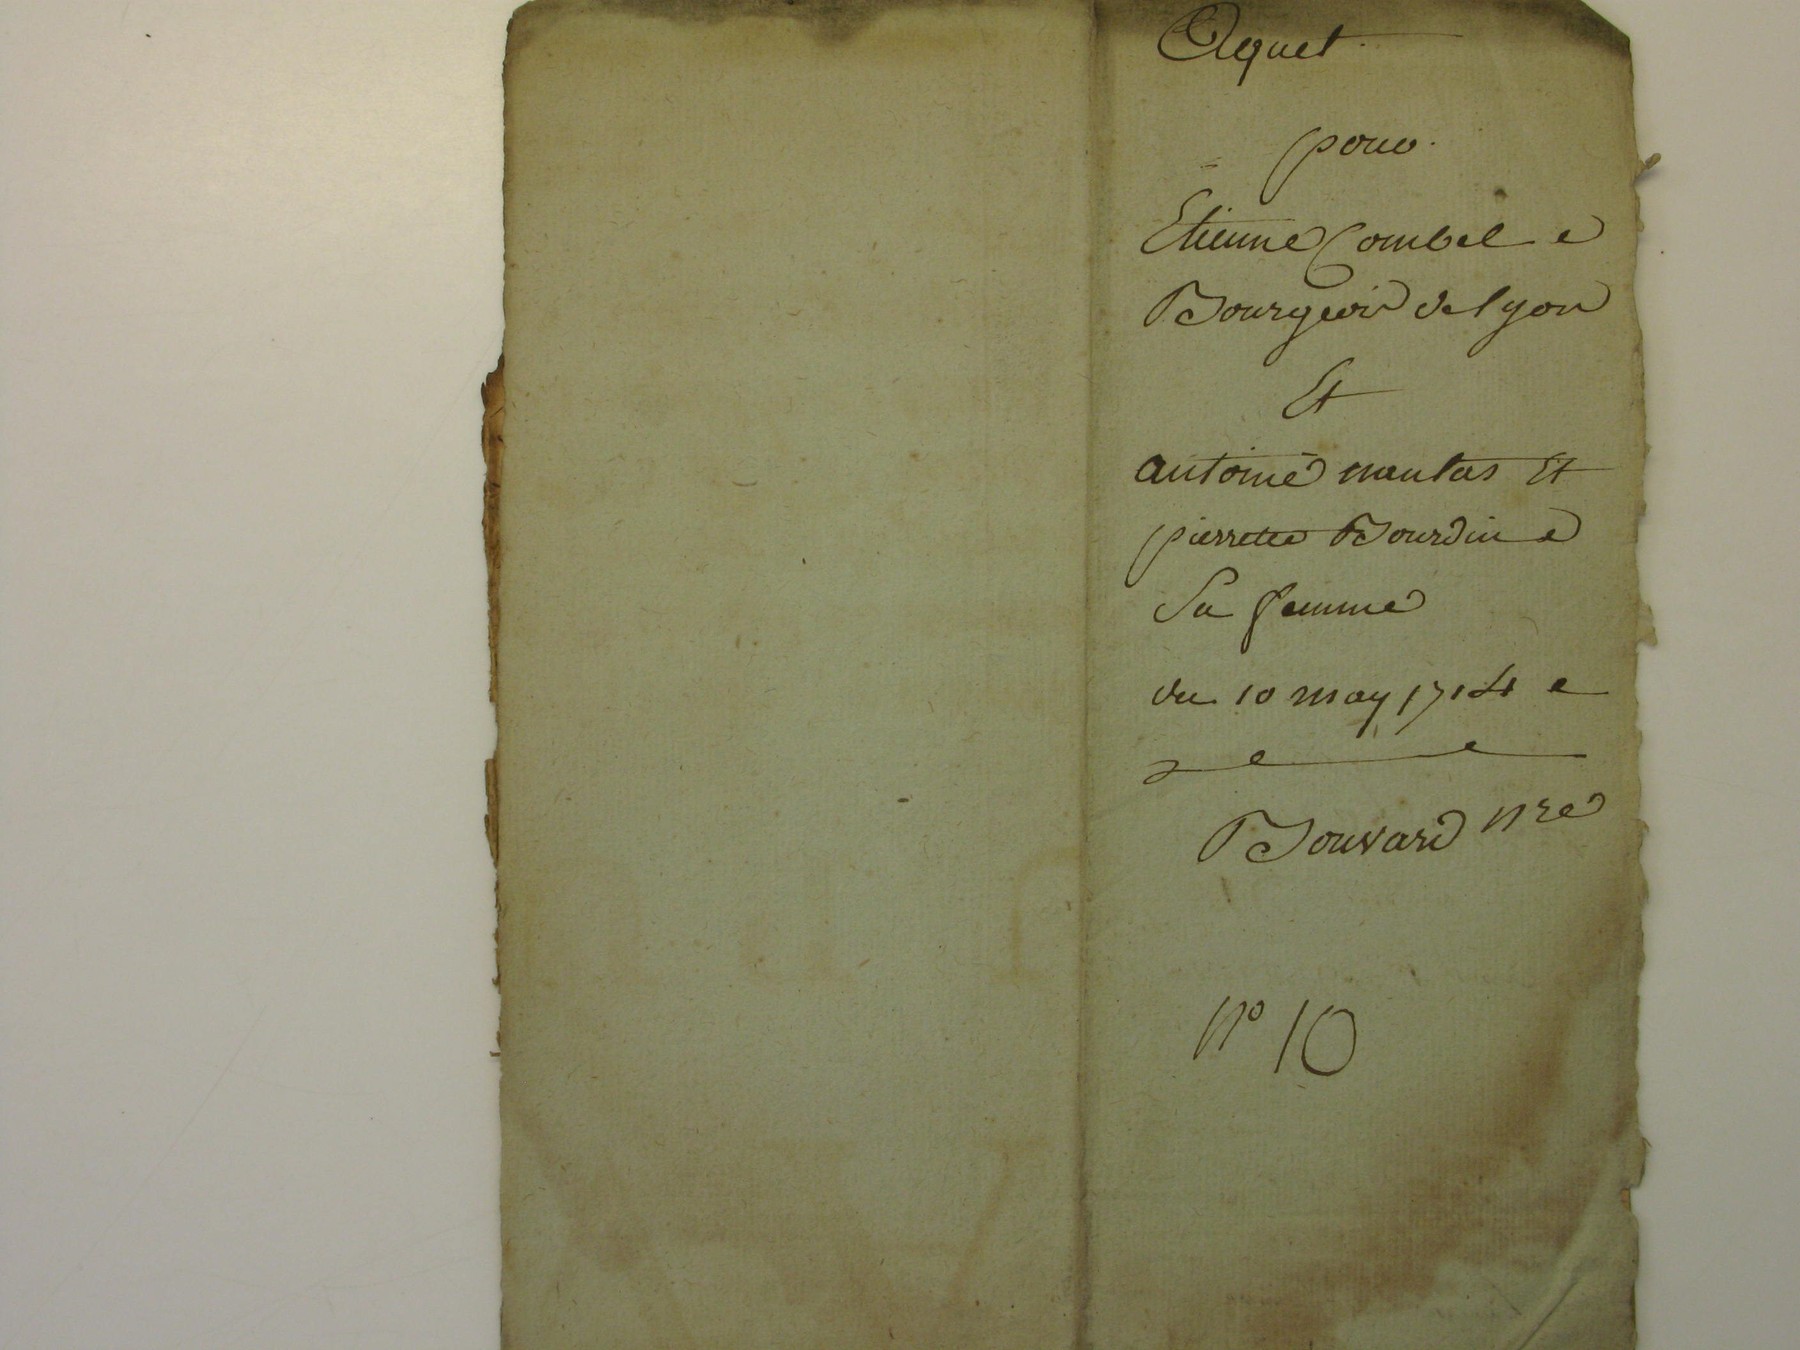 Aquet
pour
Etienne Combel
Bourgeois de lyon
Et
antoine nantas Et
pierrette Bourdin
Sa femme
du 10 may 1714
Bouvard nre
no 10